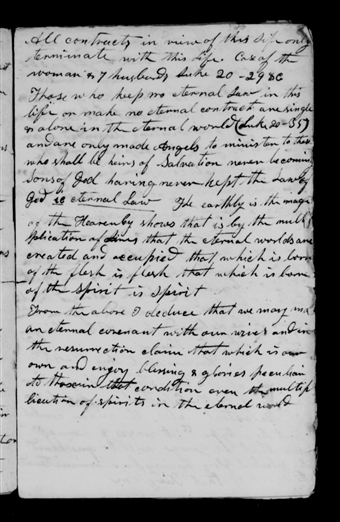 All contracts in view of this life only
terminate with this life. Case of the
woman & 7 husbands Luke 20-29 &c
Those who keep no eternal Law in this
life or make no eternal contract are single
& alone in the eternal world (Luke 20-35)
and are only made Angels to minister to those
who shall be heirs of Salvation never becoming
Sons of God having never kept the Law of
God ie eternal Law The earthly is the image
of the Heavenly shows that is by the multi
plication of Lives that the eternal worlds are
created and occupied that which is born
of the flesh is flesh that which is born
of the Spirit is Spirit
From the above I deduce that we may make
an eternal covenant with our wives and in
the resurrection claim that which is our
own and enjoy blessings & glories peculiar
to those in that condition even the multip
lication of spirits in the eternal world